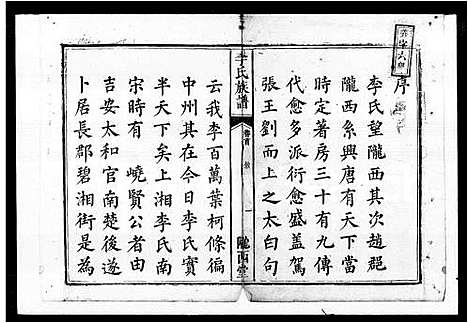 序
李氏望隴西其次趙郡
隴西系興唐有天下當
時定著房三十有九傳
代愈多派衍愈盛蓋駕
張王劉而上之太白句
李氏族譜
卷首
一
隴西堂
云我李百萬葉柯條徧
中州其在今日李氏實
半天下矣上湘李氏南
宋時有嶢賢公者由
吉安太和官南楚後遂
卜居長郡碧湘街是為